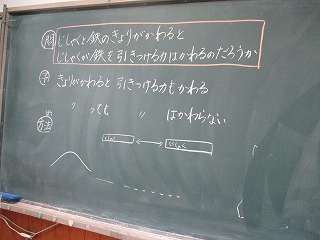 問 じしゃくと鉄のきょりがかわると
じしゃくが鉄を引きつける力はかわるのだろうか
予 きょりがかわると 引きつける力もかわる
〃 っても 〃 はかわらない
方法
じしゃく じしゃく